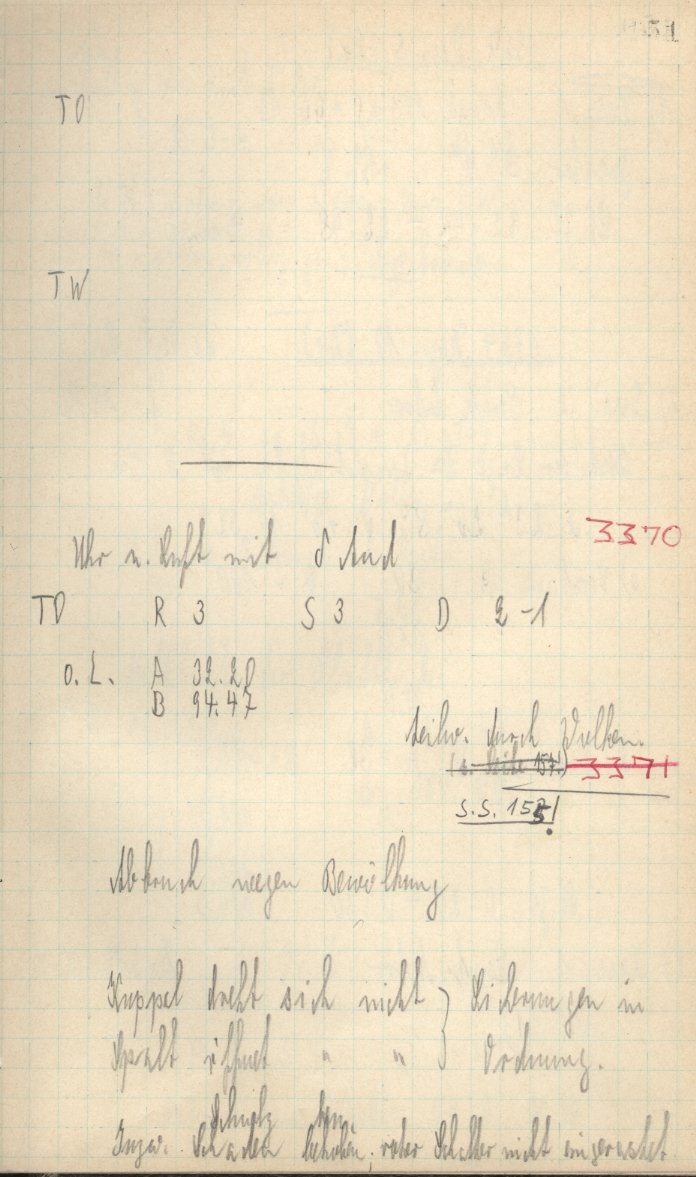 51
TD
TW
3370
Uhr n. Luft mit δ And
TD R 3 S 3 D 2-1
o. L. A 32.20
B 94.47
teilw. durch Wolken.
(s. Seite 157.) 3371
S.S. 155!
Abbruch wegen Bewölkung
Kuppel dreht sich nicht } Sicherungen in
Spalt öffnet " " } Ordnung.
Schutz
Inzw. Schaden behoben; roter Schalter nicht eingerastet